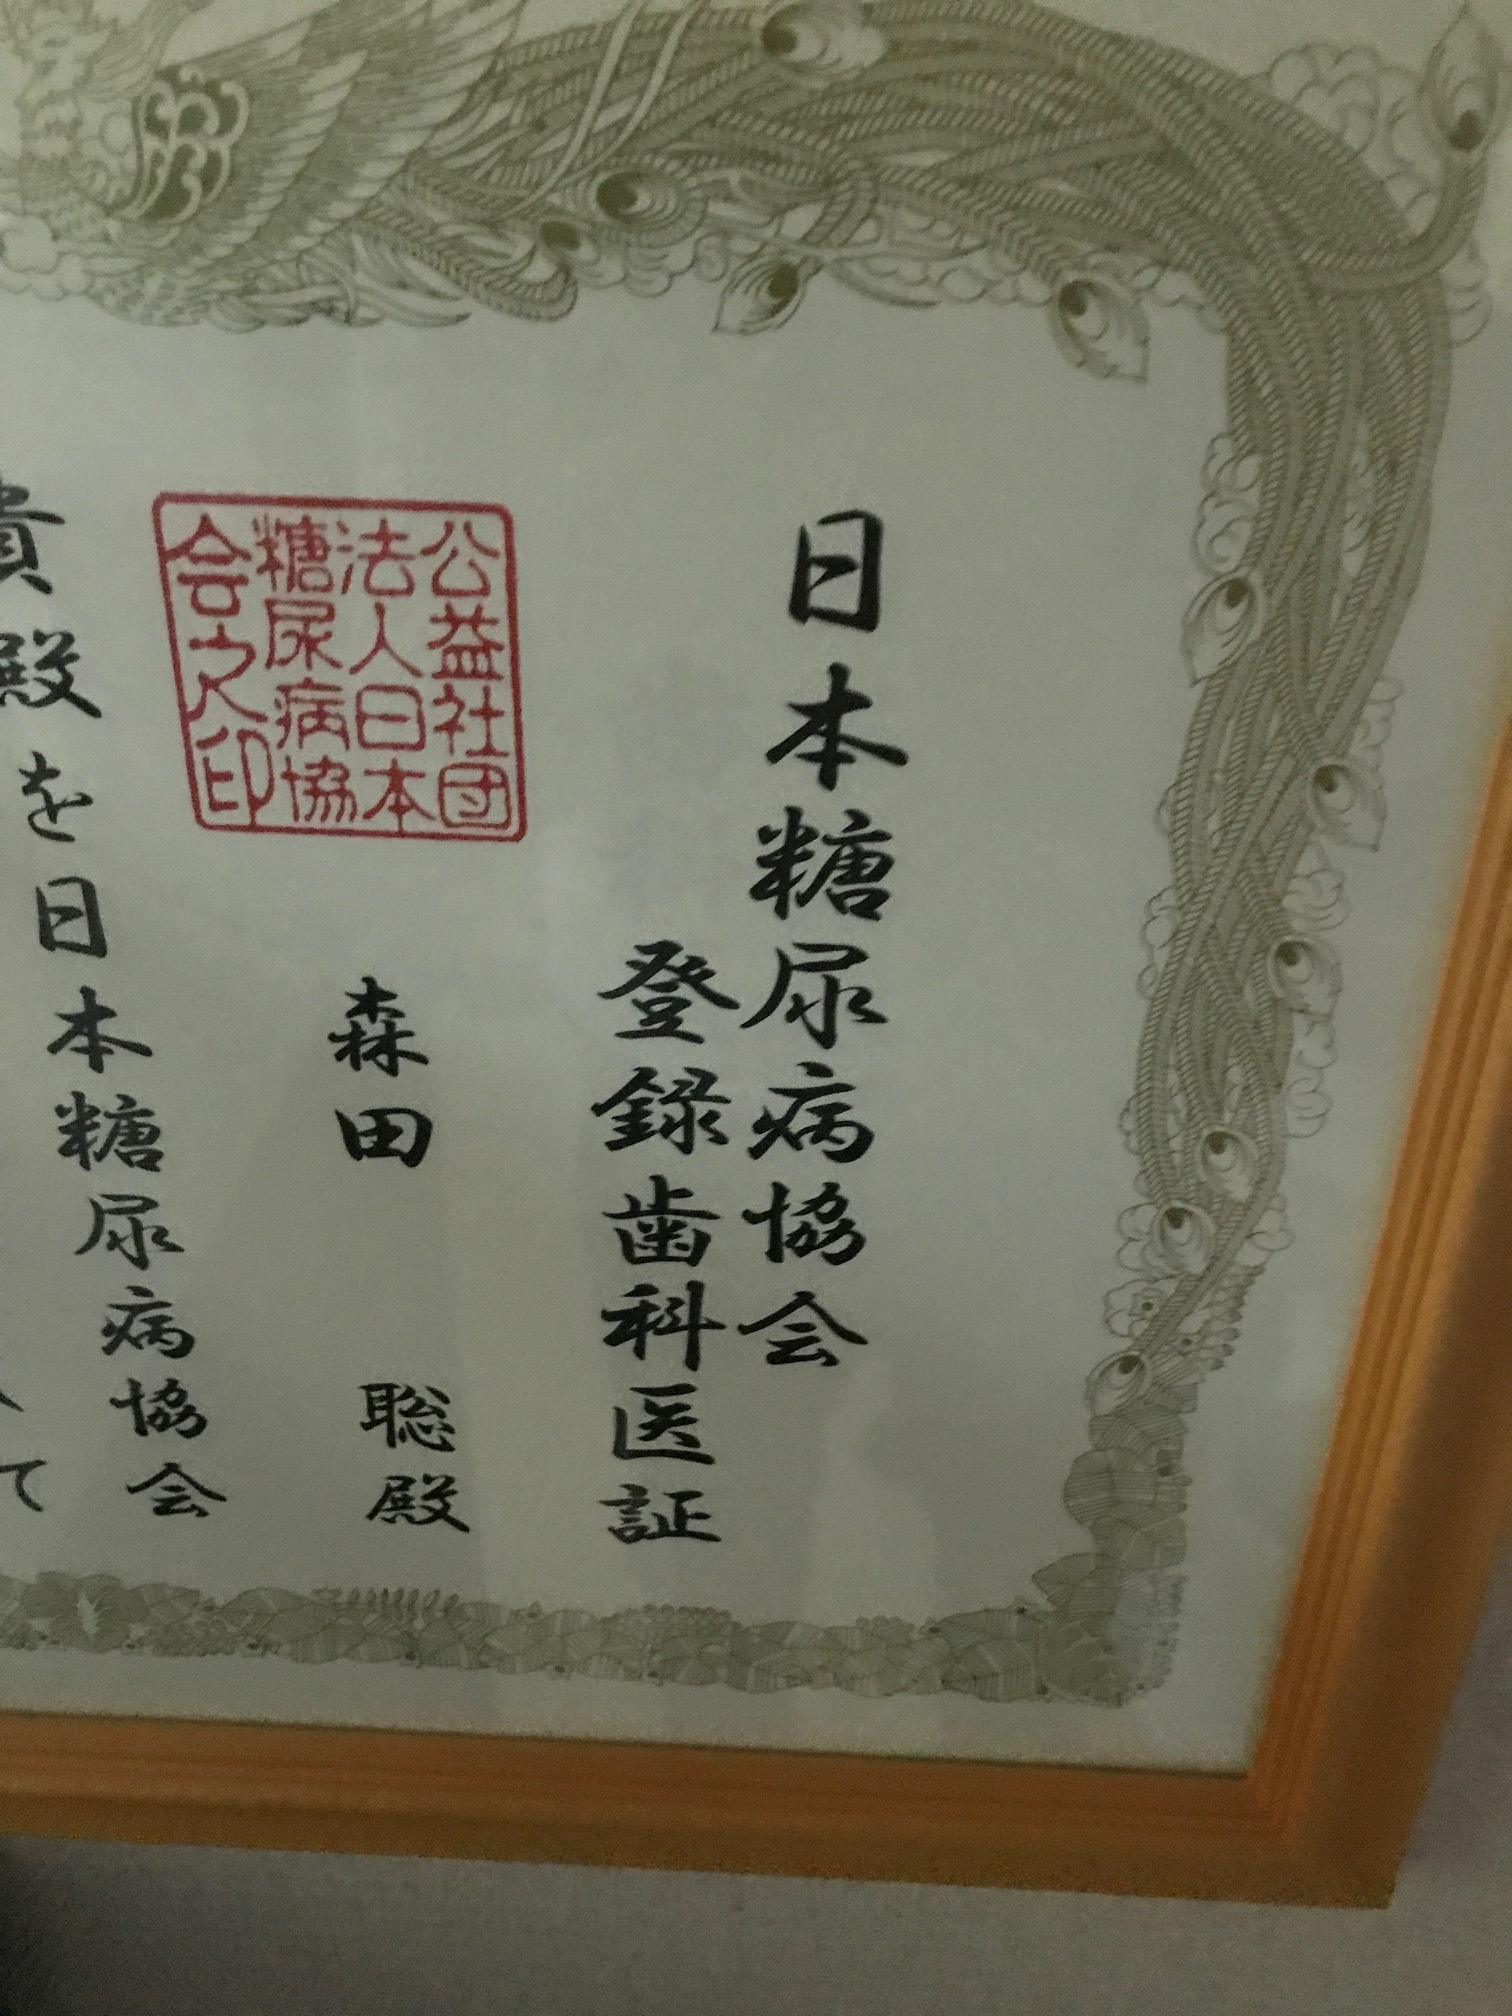 日本糖尿病協会
登録歯科医証
公益社団
法人日本
糖尿病協
会之印
森田 聡殿
貴殿を日本糖尿病協会
て